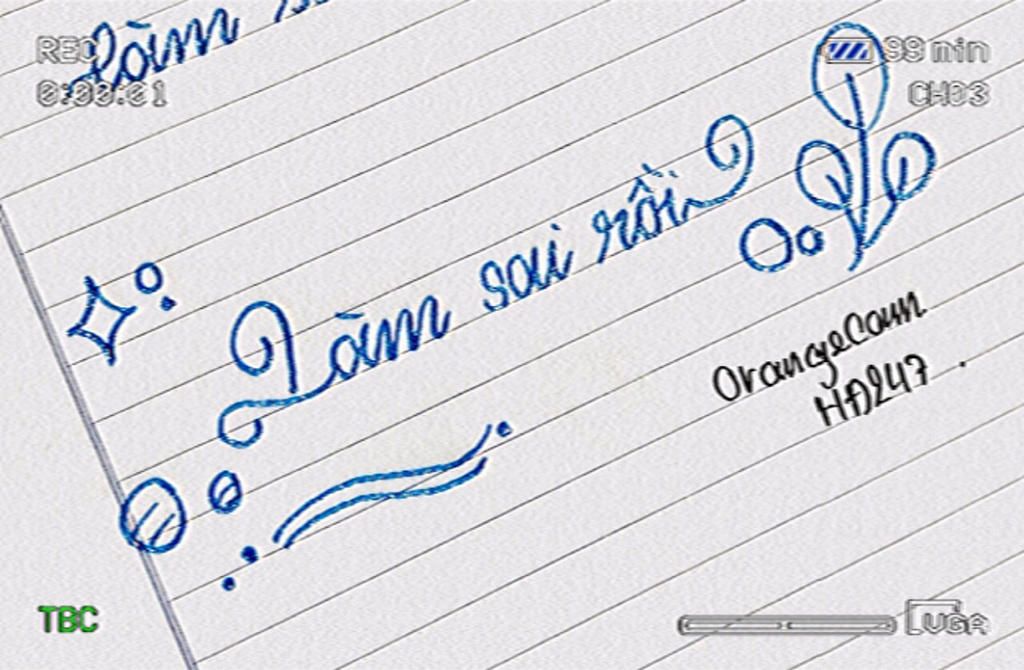 Làm
REC
0:00:01
99 min
CH03
Làm sai rồi
OrangeCam
HĐ247.
TBC
VGA